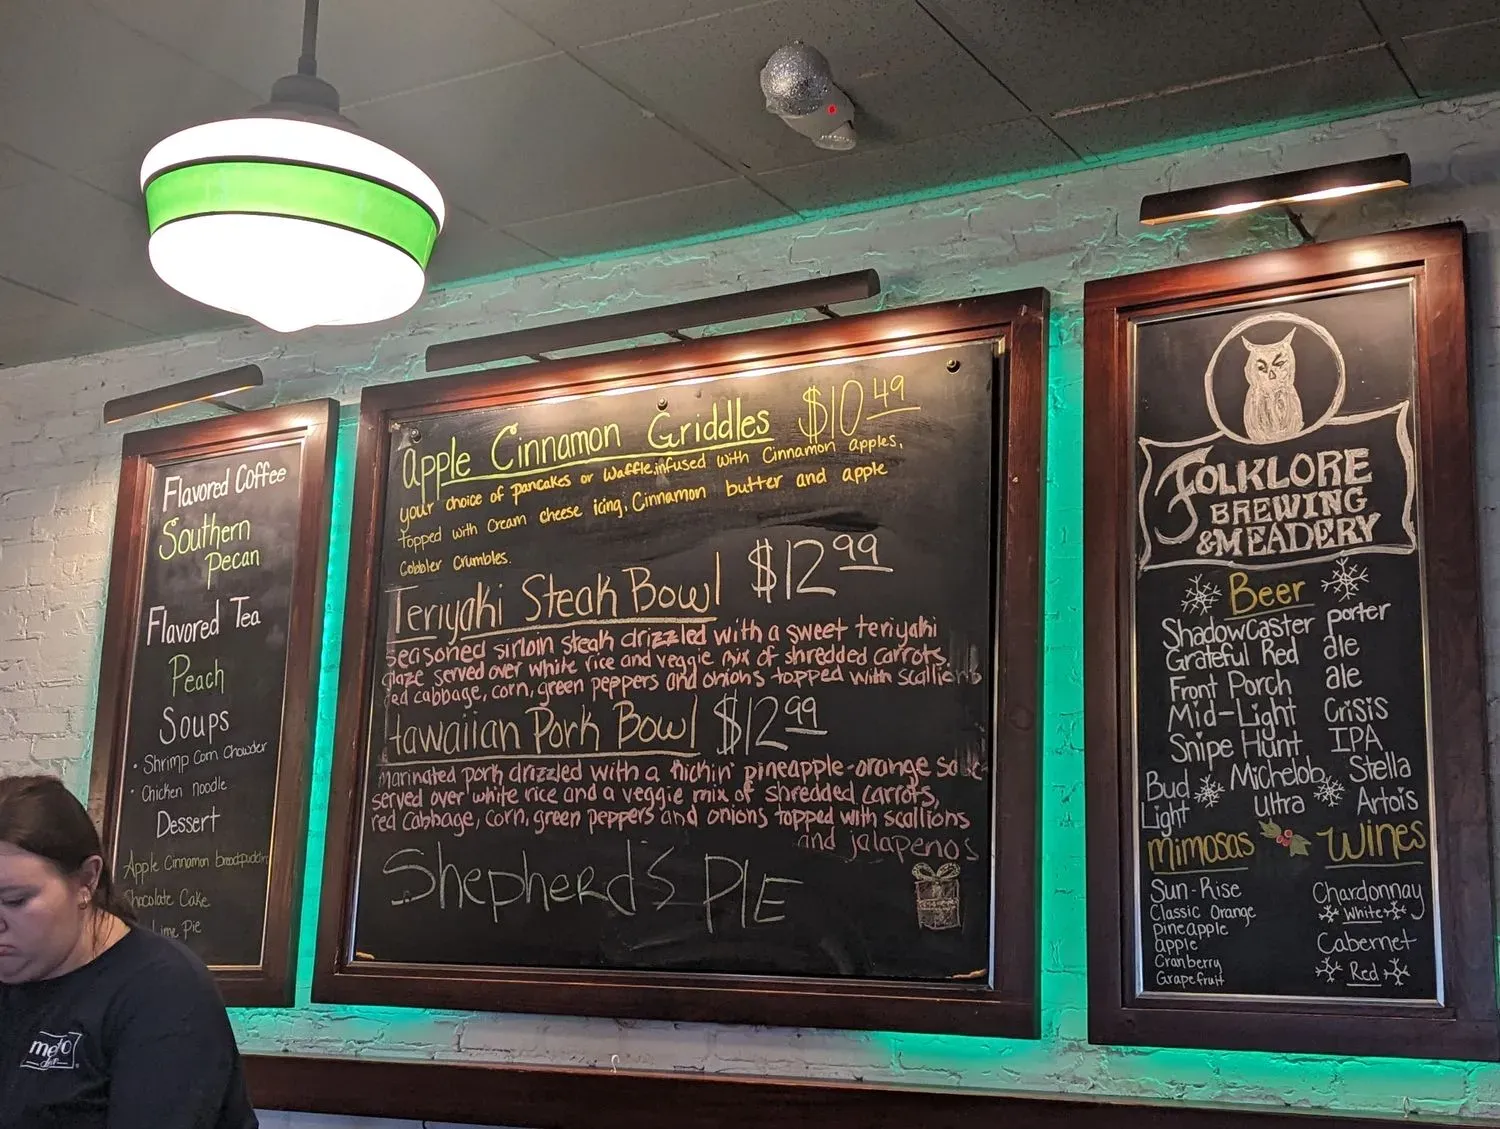 Flavored Coffee
Southern
Pecan
Flavored Tea
Peach
Soups
• Shrimp Corn Chowder
• Chicken noodle
Dessert
Apple Cinnamon breadpuddin
Chocolate Cake
Lime Pie
Apple Cinnamon Griddles $10.49
your choice of pancakes or waffle, infused with Cinnamon apples,
Topped with cream cheese icing, Cinnamon butter and apple
Cobbler Crumbles.
Teriyaki Steak Bowl $12.99
seasoned sirloin steak drizzled with a sweet teriyaki
glaze served over white rice and veggie mix of shredded carrots,
red cabbage, corn, green peppers and onions topped with scallions
Hawaiian Pork Bowl $12.99
marinated pork drizzled with a kickin' pineapple-orange
served over white rice and a veggie mix of shredded carrots,
red cabbage, corn, green peppers and onions topped with scallions
and jalapenos
Shepherd's PIE
FOLKLORE
BREWING
& MEADERY
Beer
Shadowcaster porter
Grateful Red ale
Front Porch ale
Mid-Light Crisis
Snipe Hunt IPA
Bud Light
Michelob Ultra
Stella Artois
mimosas
Sun-Rise
Classic Orange
pineapple
apple
Cranberry
Grapefruit
Wines
Chardonnay
White
Cabernet
Red
metro
diner